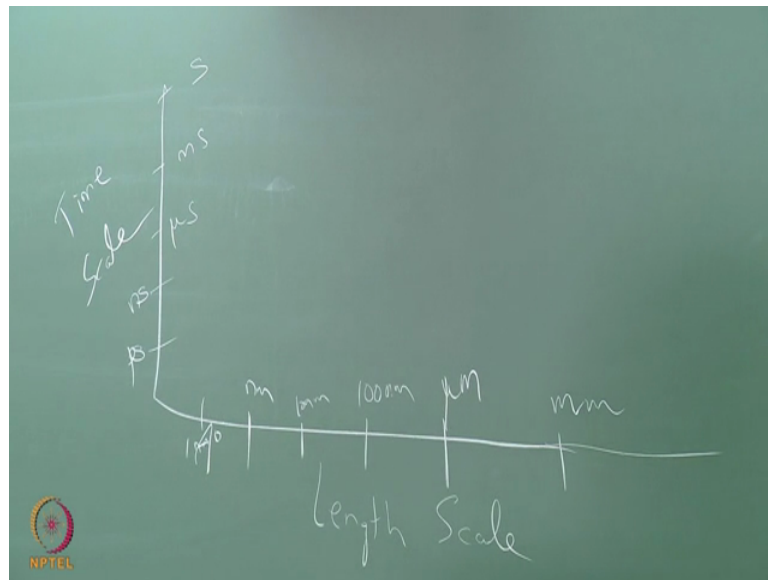 S
ms
Time
Scale
μs
ns
ps
nm
10nm
100nm
μm
mm
Length Scale
NPTEL